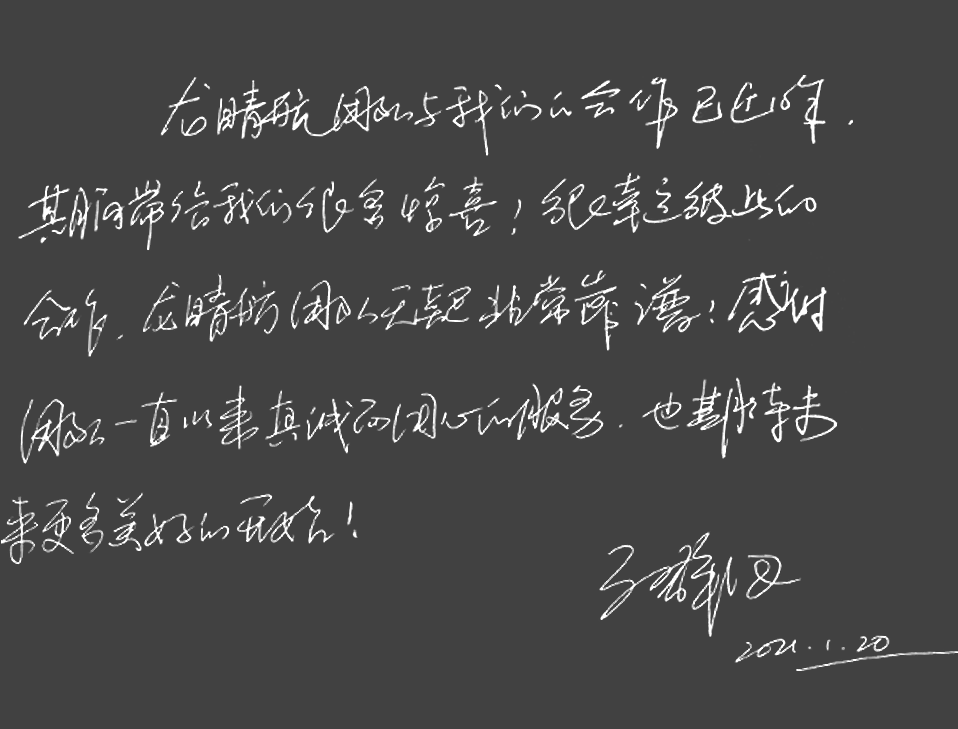 龙晴航团队与我们的合作已近10年.
期间带给我们很多惊喜!纪
彼此的
合作,龙晴航团队 非常靠谱!感谢
团队一直以来真诚而用心的服务.也期待未
来更多美好的开始!
2021.1.20